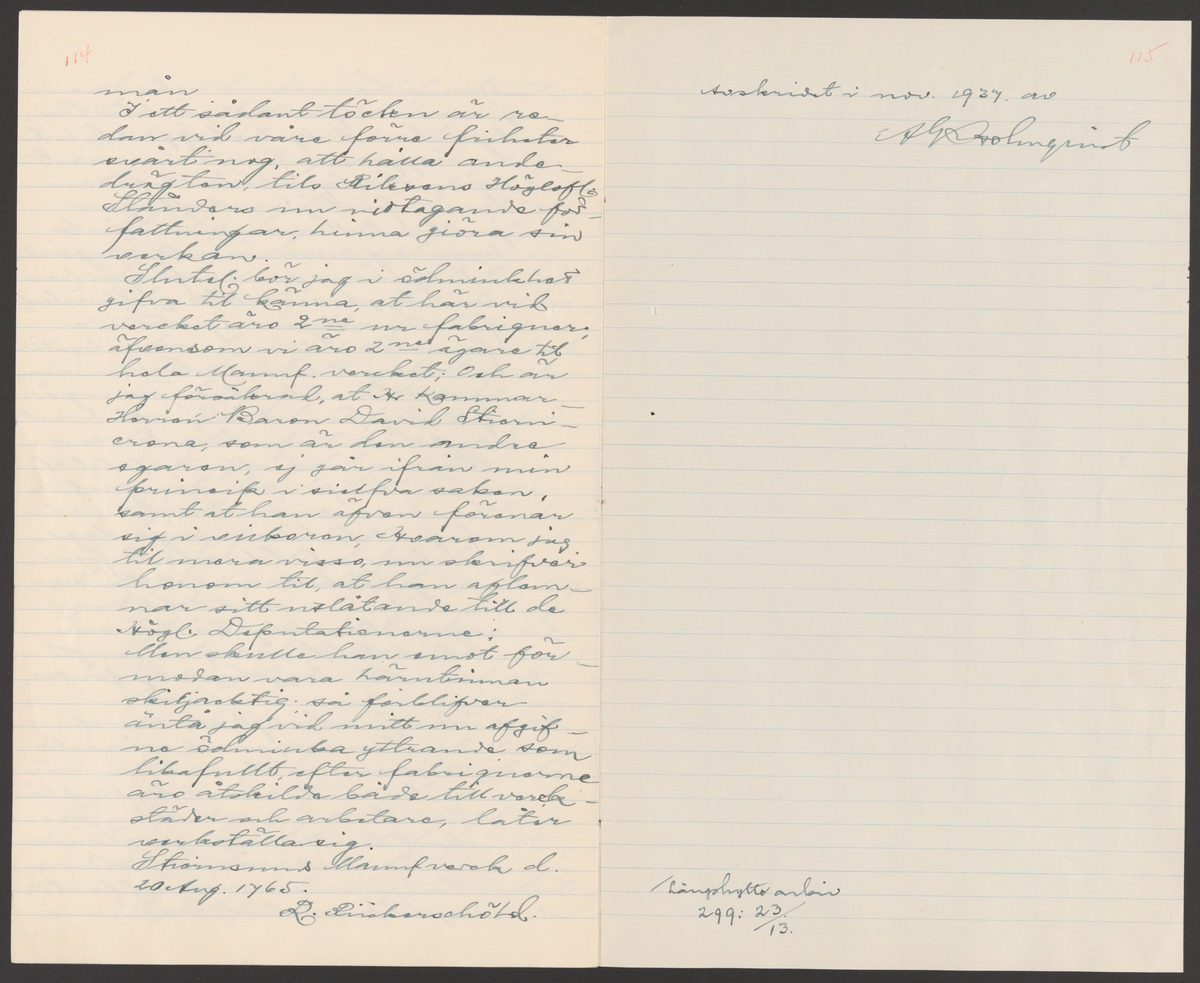 114
mån
I ett sådant töcken är re-
dan vid våre förre friheter
svårt nog, att hålla ande-
drägten, tils Riksens Höglofl.
Ständers nu vidtagande för-
fattningar, hinna giöra sin
verkan.
Slutel. bör jag i ödmiukhet
gifva til känna, at här vid
vercket äro 2ne ur fabriquer,
äfvensom vi äro 2ne ägare til
hela Manuf. vercket; Och är
jag försäkrad, at Hr Kammar-
Herren Baron David Stiern-
crona, som är den andre
egaren, ej går ifrån min
princip i sielfva saken,
samt at han äfven förenar
sig i vilkoren, Hvarom jag
til mera visso, nu skrifver
honom til, at han aflem-
nar sitt utlåtande till de
Högl. Deputationerne;
Men skulle han emot för-
modan vara härutinnan
skiljacktig: så förblifver
ändå jag vid mitt nu afgif-
ne ödmiuka yttrande, som
likafullt, efter fabriquerne
äro åtskilde både till verck-
städer och arbetare, låter
verkställa sig.
Stiernsunds Manufverck d.
20 Aug. 1765.
R. Rückerschöld.
115
Avskrivet i nov. 1937. av
AG Holmqvist
Långshytte arkiv
299: 23/13.